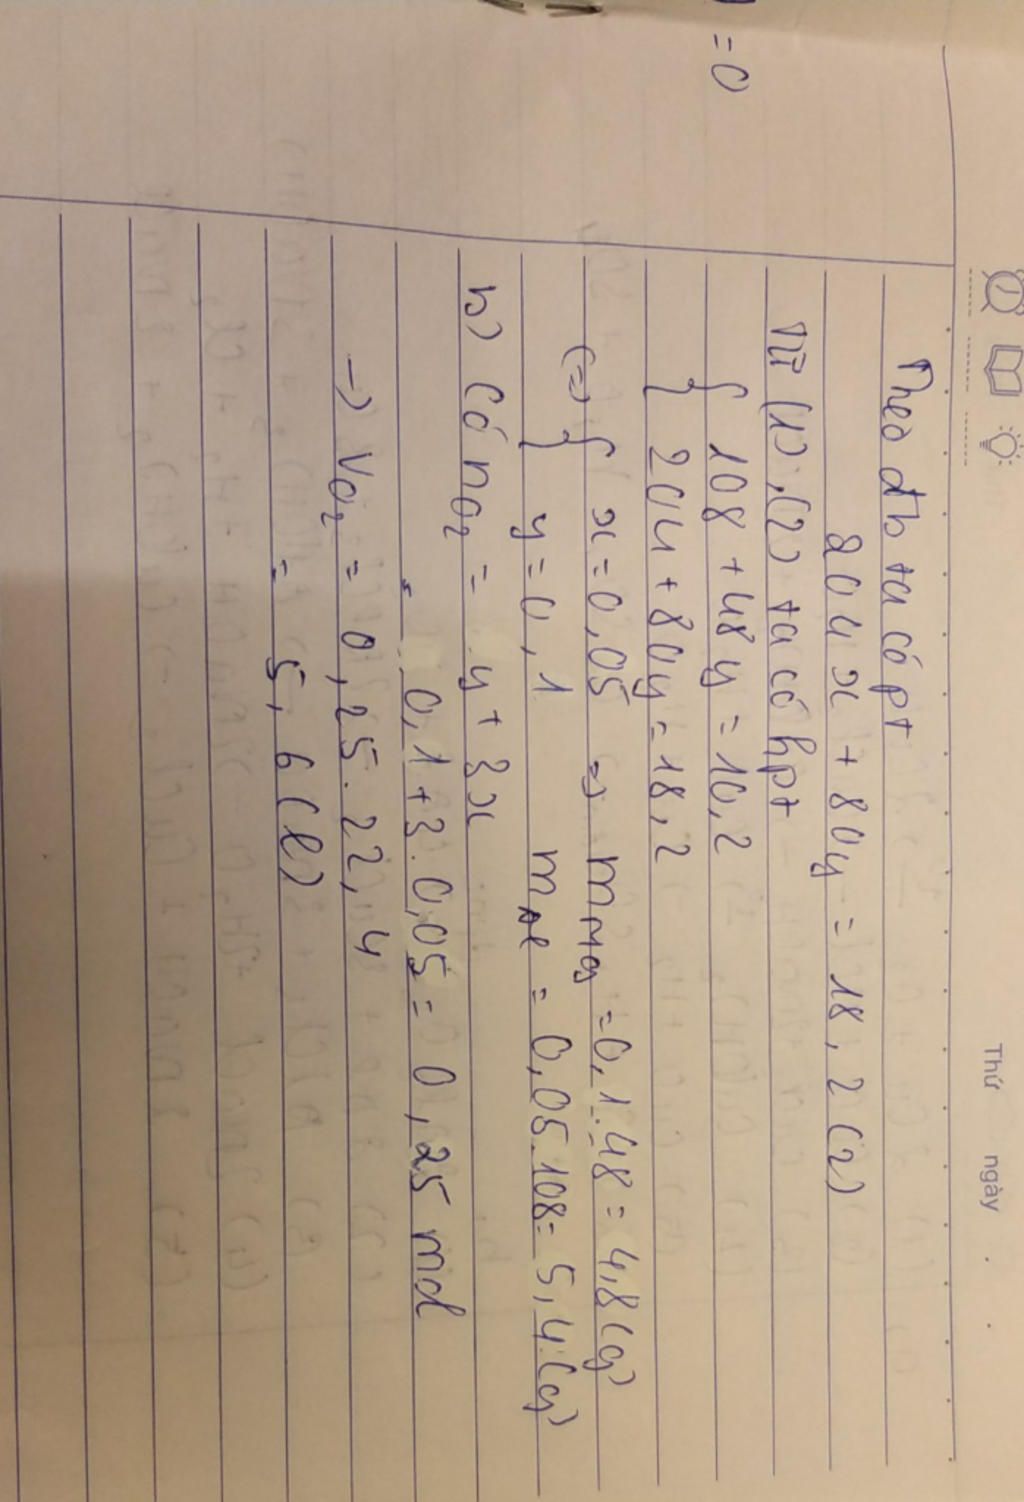 Thứ ngày . .
Theo đb ta có pt
204x + 80y = 18,2 (2)
Từ (1),(2) ta có hpt
= 0
{ 108 + 48y = 10,2
204 + 80y = 18,2
(=) { x = 0,05 => mMg = 0,1.48 = 4,8 (g)
y = 0,1 mAl = 0,05.108 = 5,4 (g)
b) Có nO2 = y + 3x
= 0,1 + 3.0,05 = 0,25 mol
-> VO2 = 0,25.22,4
= 5,6 (l)